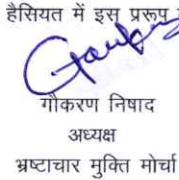 हैसियत में इस प्ररूप
गौकरण निषाद
अध्यक्ष
भ्रष्टाचार मुक्ति मोर्चा